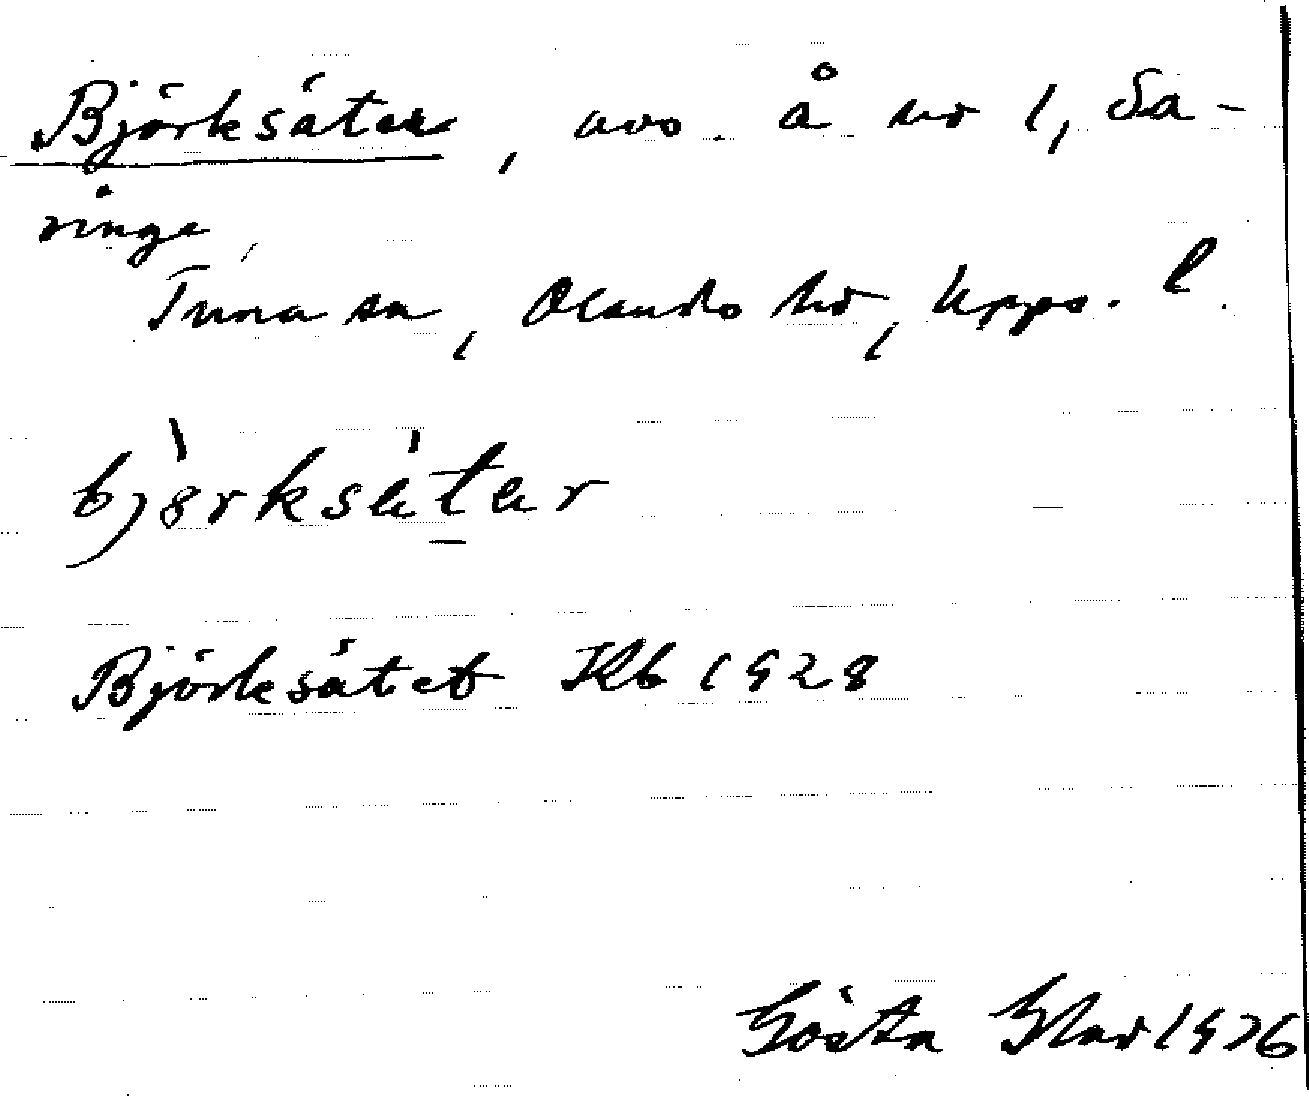 Björksäter, avs. å nr 1, Sa-
ringe,
Tuna sn, Olands hd, Upps. l.
bjö̀rksätar
Björksätet Kb 1928
Gösta 1976